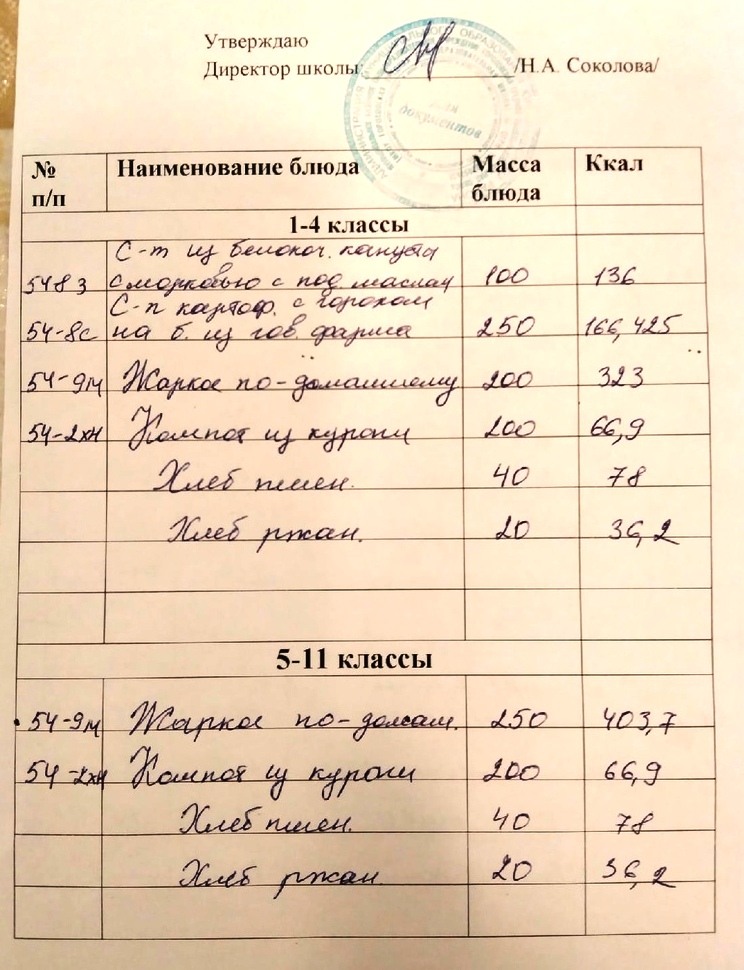 Утверждаю
Директор школы /Н.А. Соколова/
для
документов
№ Наименование блюда Масса Ккал
п/п блюда
1-4 классы
С-т из белокоч. капусты
54 8 з с морковью с под. маслом 100 136
С-п картоф. с горохом
54-8с на б. из гов. фарша 250 166,425
54-9м Жаркое по-домашнему 200 323
54-2хн Компот из кураги 200 66,9
Хлеб пшен. 40 78
Хлеб ржан. 20 36,2
5-11 классы
54-9м Жаркое по-домам. 250 403,7
54-2хн Компот из кураги 200 66,9
Хлеб пшен. 40 78
Хлеб ржан. 20 36,2